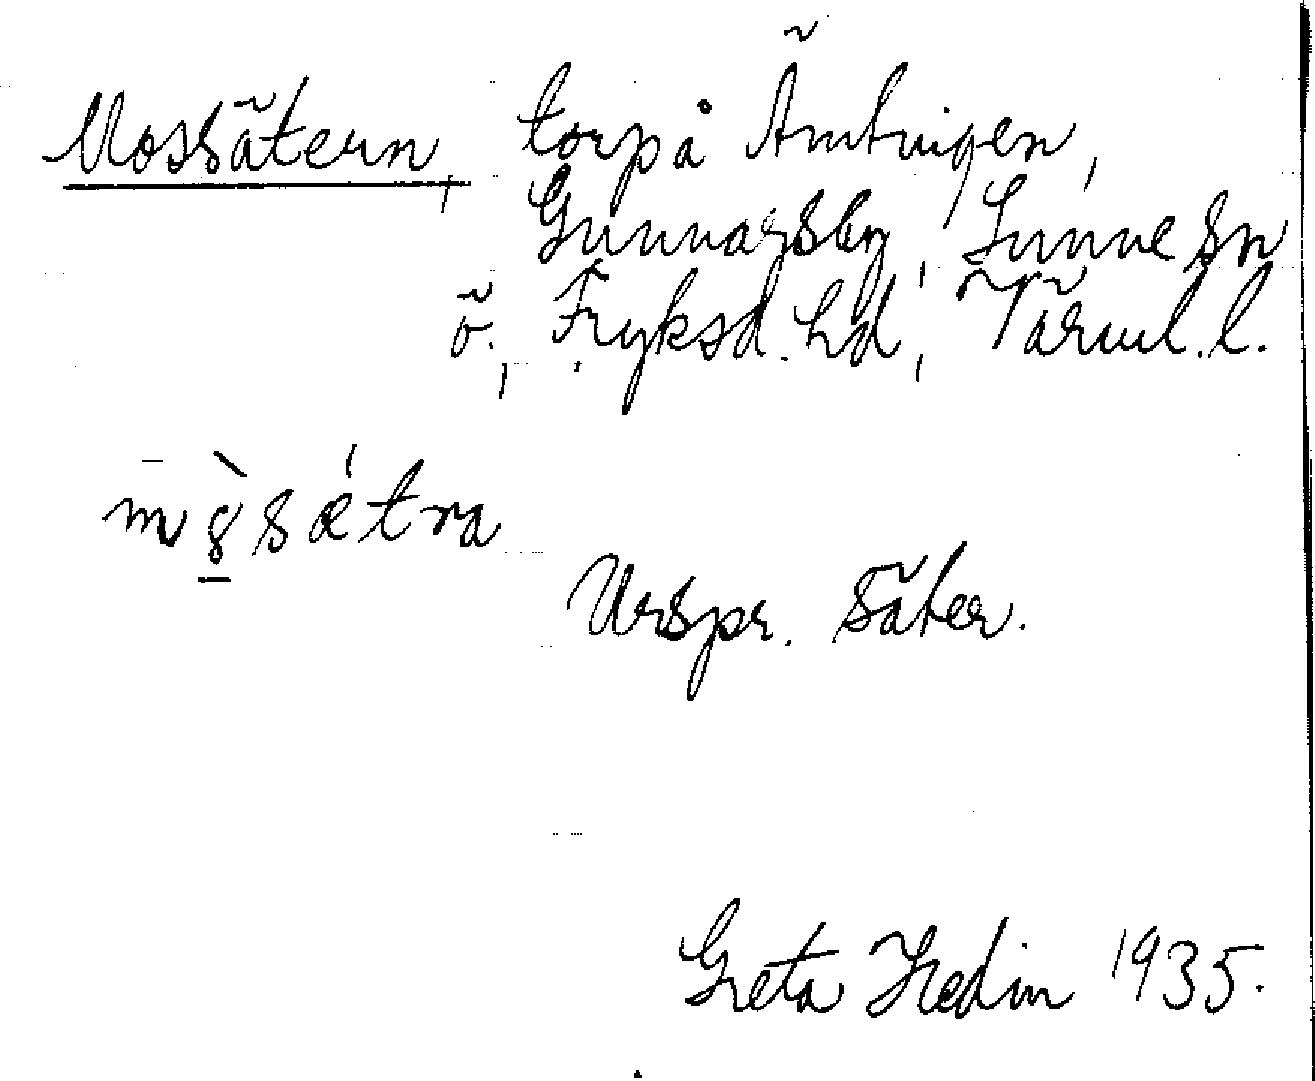 Mossätern, torp å Ämtvigen,
Gunnarsby, Sunne sn
ö., Fryksd. hd, Värml. l.
Urspr. säter.
Greta Hedin 1935.